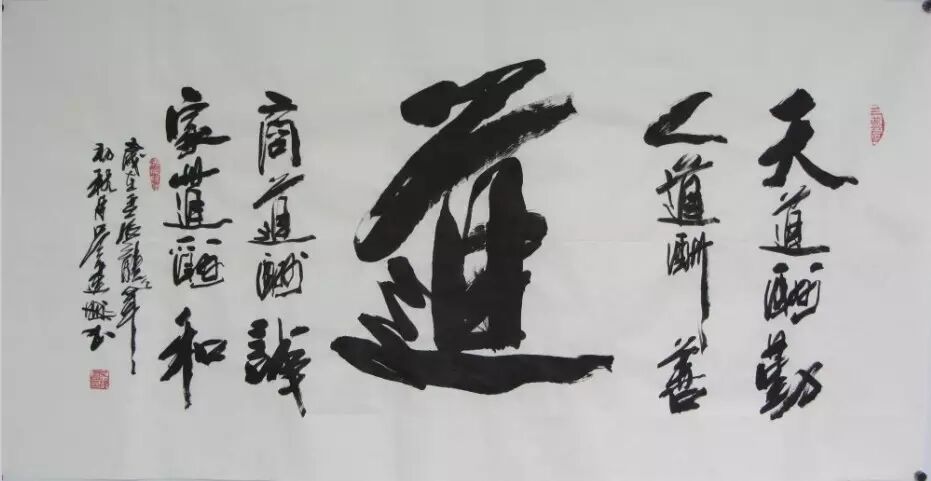 天道酬勤
人道酬善
道
商道酬誠
家道酬和
歲在壬辰龍年
初秋月